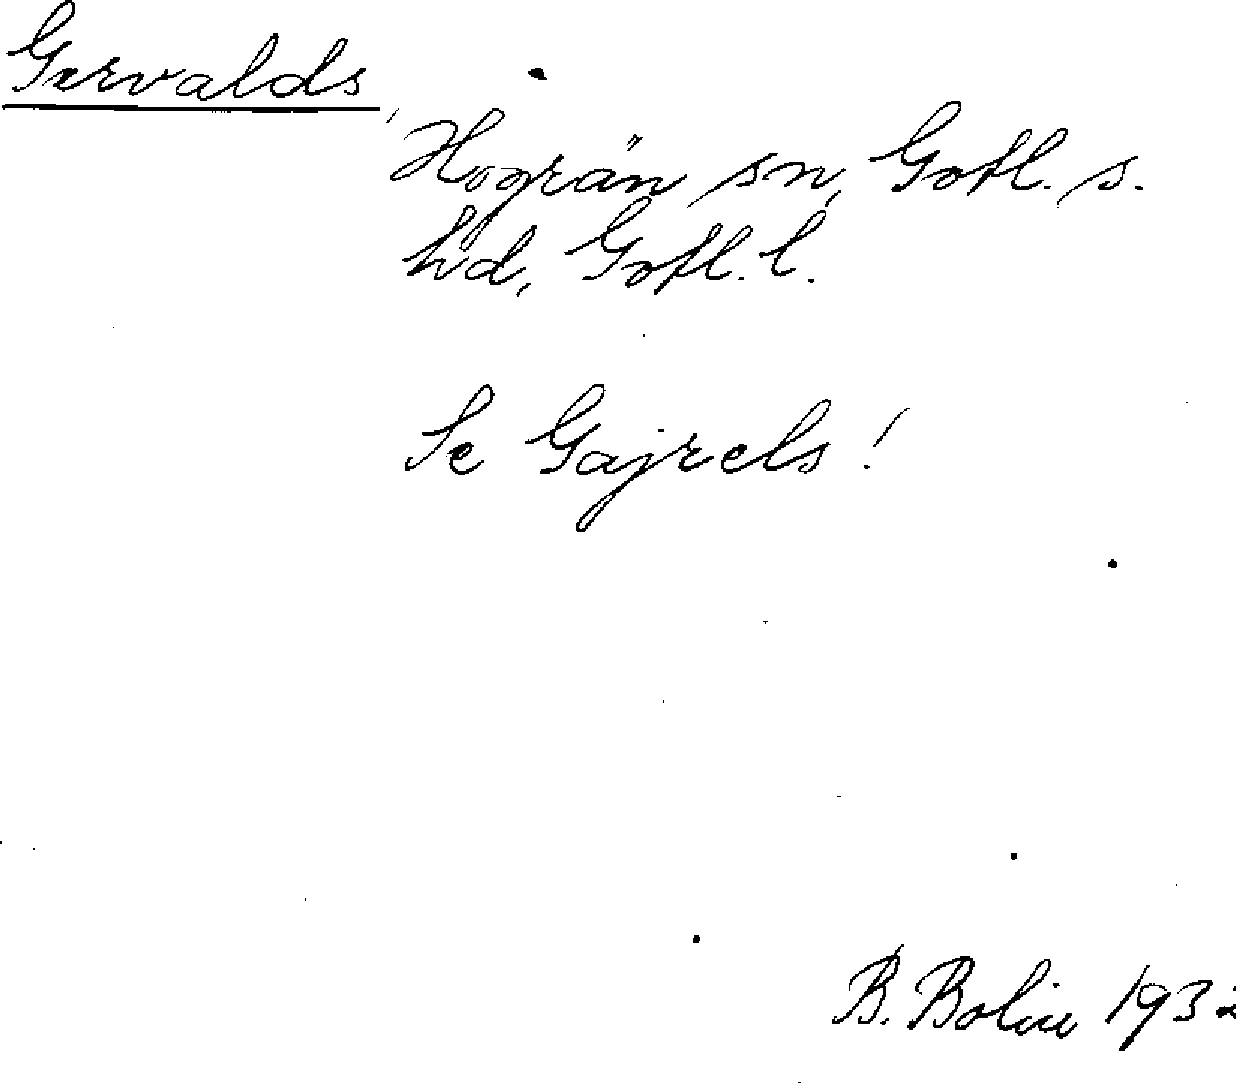 Gervalds
Hogrän sn, Gotl. s.
hd, Gotl. l.
Se Gajrels!
B. Bolin 1932